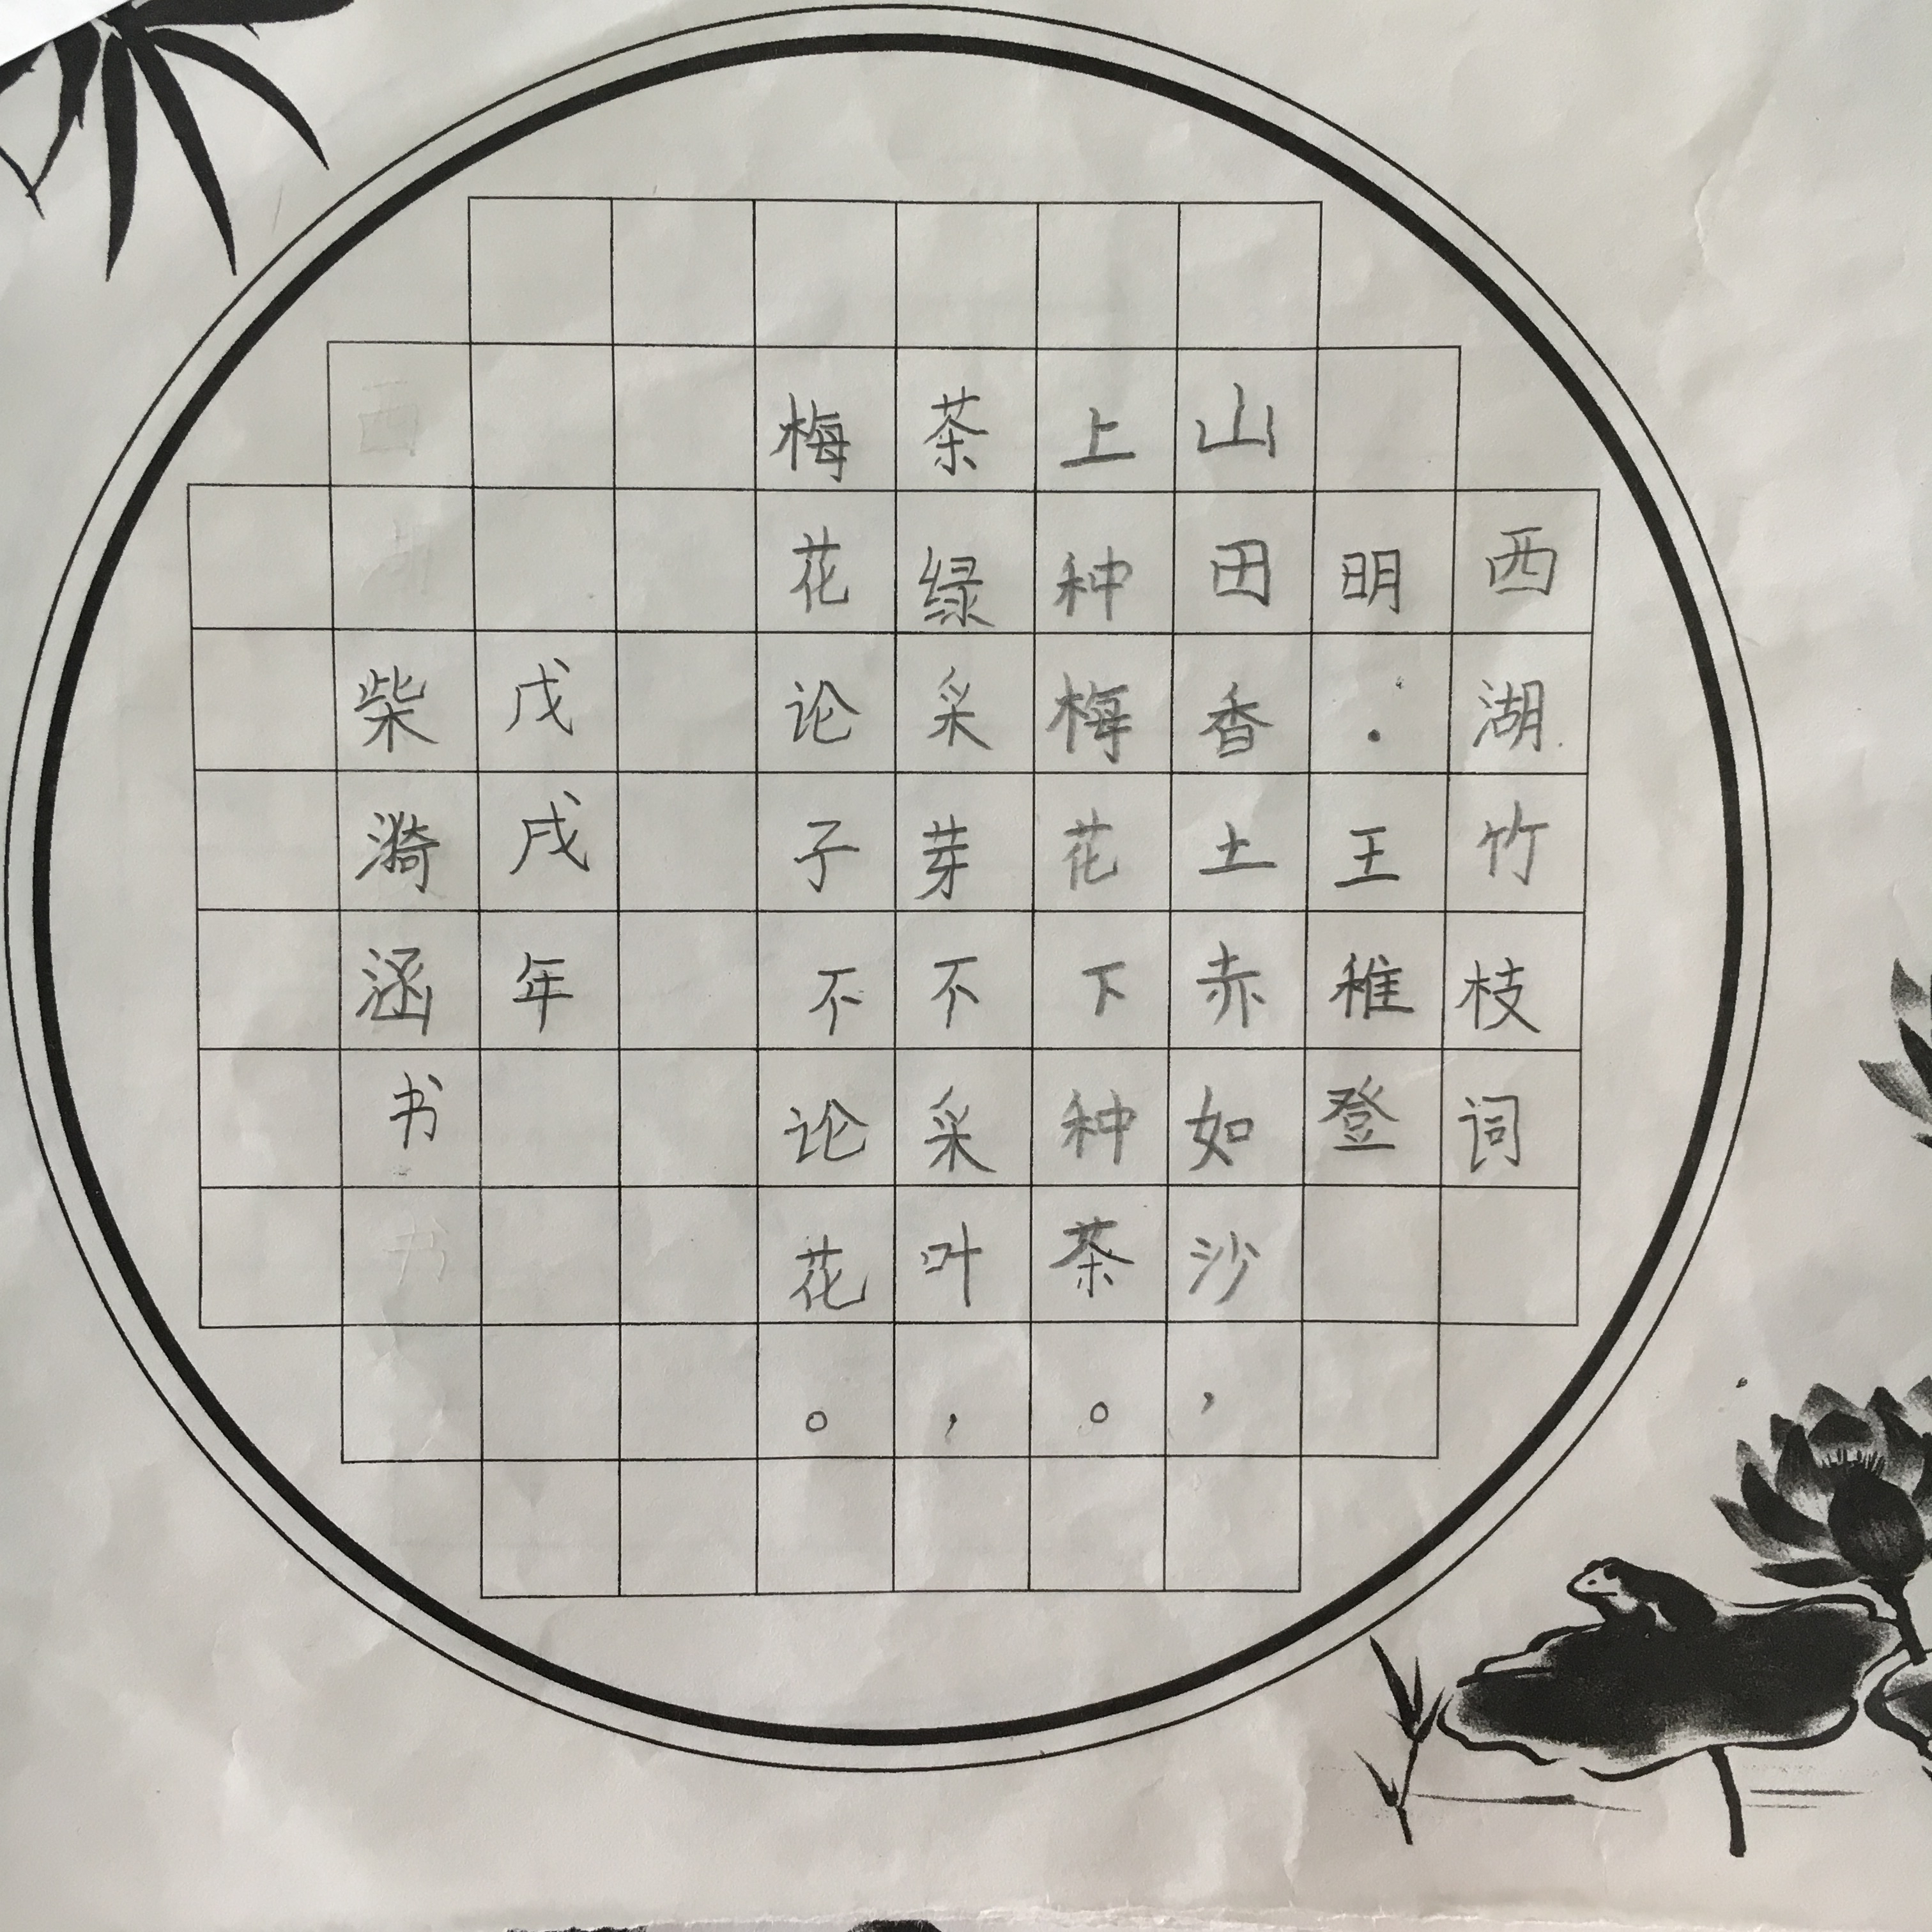 西湖竹枝词
明·王稚登
山田香土赤如沙，
上种梅花下种茶。
茶绿采芽不采叶，
梅花论子不论花。
戊戌年
柴漪涵书